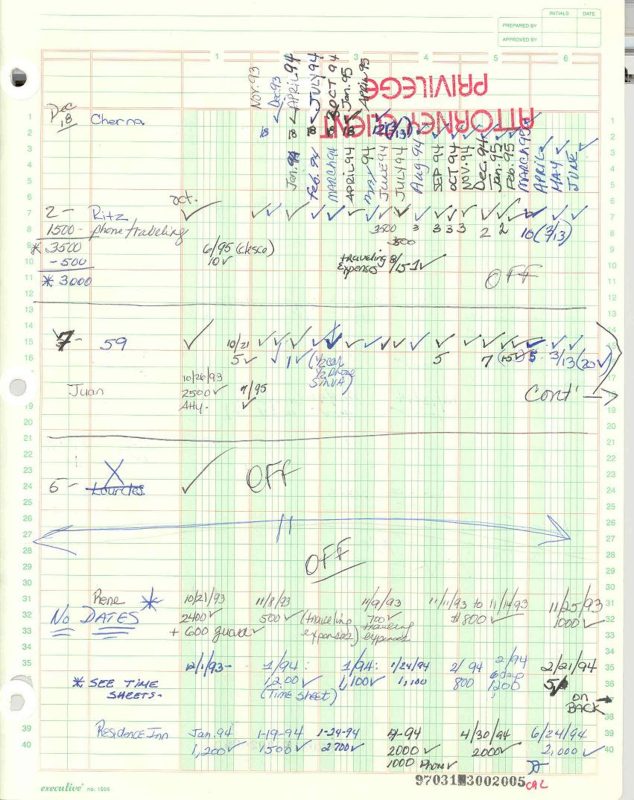 INITIALS DATE
PREPARED BY
APPROVED BY
1 2 3 4 5 6
NOV. 93
Dec 93
APRIL 94
JULY 94
OCT 94
Jan. 95
APRIL 95
ATTORNEY CLIENT
PRIVILEGE
Dec
18
Jan. 94
Feb. 94
MARCH 94
APRIL 94
MAY 94
JUNE 94
JULY 94
Aug 94
SEP 94
OCT 94
NOV. 94
Dec. 94
Jan. 95
Feb. 95
MARCH 95
APRIL
MAY
JUNE
oct.
2 - Ritz ✓
1500 - phone traveling 3500 3 3 3 3 2 2 10 (3/13)
* 3500 6/95 3500
- 500 10✓ traveling expenses 8/15 1✓ OFF
* 3000
7 - 59 ✓ 10/21
5✓ 1✓ 5 7 5 3/13 (20✓
Juan 10/26/93
2500✓ 7/95
Atty. ✓
Cont' →
5 - X Lourdes ✓ OFF
OFF
* 10/21/93 11/8/93 11/9/93 11/11/93 to 11/14/93 11/25/93
NO DATES 2400✓ 500✓ (traveling expenses) 700✓ traveling expenses $800✓ 1000✓
+ 600
12/1/93- 1/94: 1/94: 1/24/94 2/94 2/94 2/21/94
* SEE TIME SHEETS- 1,200✓ (Time sheet) 1,100✓ 1,100 800 1200
on BACK →
Residence Inn Jan. 94 1-19-94 1-29-94 4-94 4/30/94 6/24/94
1,200✓ 1500✓ 2700✓ 2000✓ 2000✓ 2,000✓
1000 Phone✓
97031 3002005
CAL
executive® no. 1506